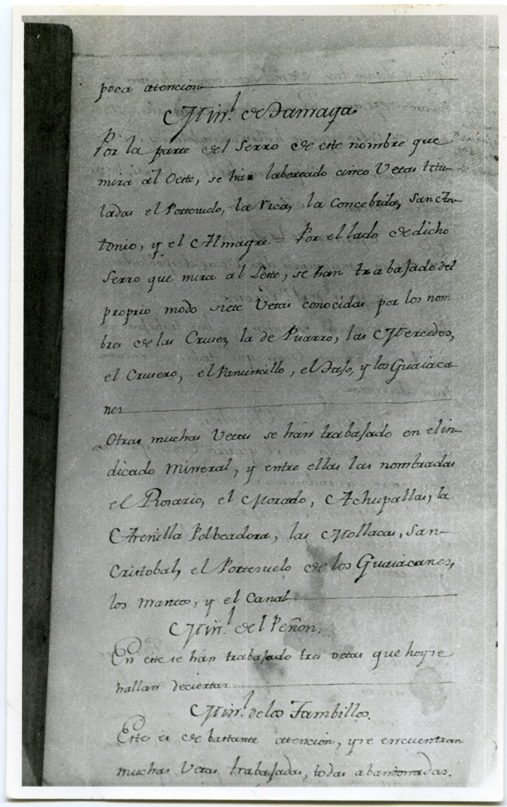 poca atencion
Min.l de Jamaya.
Por la parte del Serro de este nombre que
mira al Oeste, se han laboreado cinco Vetas titu-
ladas el Portesuelo, la rica, la Concebida, San An-
tonio, y el Almagre = Por el lado de dicho
Serro que mira al Leste, se han trabajado del
proprio modo siete Vetas conocidas por los nom
bres de las Cruses, la de Pisarro, las Mercedes,
el Crusero, el Panuncillo, el Dafo, y los Guaiaca
nes
Otras muchas Vetas se han trabajado en el in-
dicado mineral, y entre ellas las nombradas
el Rosario, el Morado, Achupallas, la
Arenilla Polbeadora, las Mollacas, San-
Cristobal, el Portesuelo de los Guaiacanes,
los Mantos, y el Canal
Min.l del Peñon.
En este se han trabajado tres vetas que hoy se
hallan deciertas
Min.l de los Tambillos.
Este es de bastante atencion, y se encuentran
muchas Vetas trabajadas, todas abandonadas.